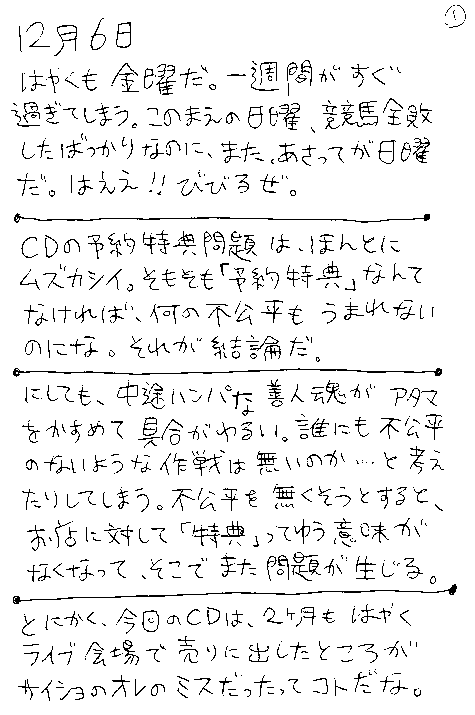 ①
12月6日
はやくも金曜だ。一週間がすぐ
過ぎてしまう。このまえの日曜、競馬全敗
したばっかりなのに、また、あさってが日曜
だ。はええ!!びびるぜ。
CDの予約特典問題は、ほんとに
ムズカシイ。そもそも「予約特典」なんて
なければ、何の不公平もうまれない
のにな。それが結論だ。
にしても、中途ハンパな善人魂がアタマ
をかすめて具合がわるい。誰にも不公平
のないような作戦は無いのか…と考え
たりしてしまう。不公平を無くそうとすると、
お店に対して「特典」ってゆう意味が
なくなって、そこでまた問題が生じる。
とにかく、今回のCDは、2ヶ月もはやく
ライブ会場で売りに出したところが
サイショのオレのミスだったってコトだな。